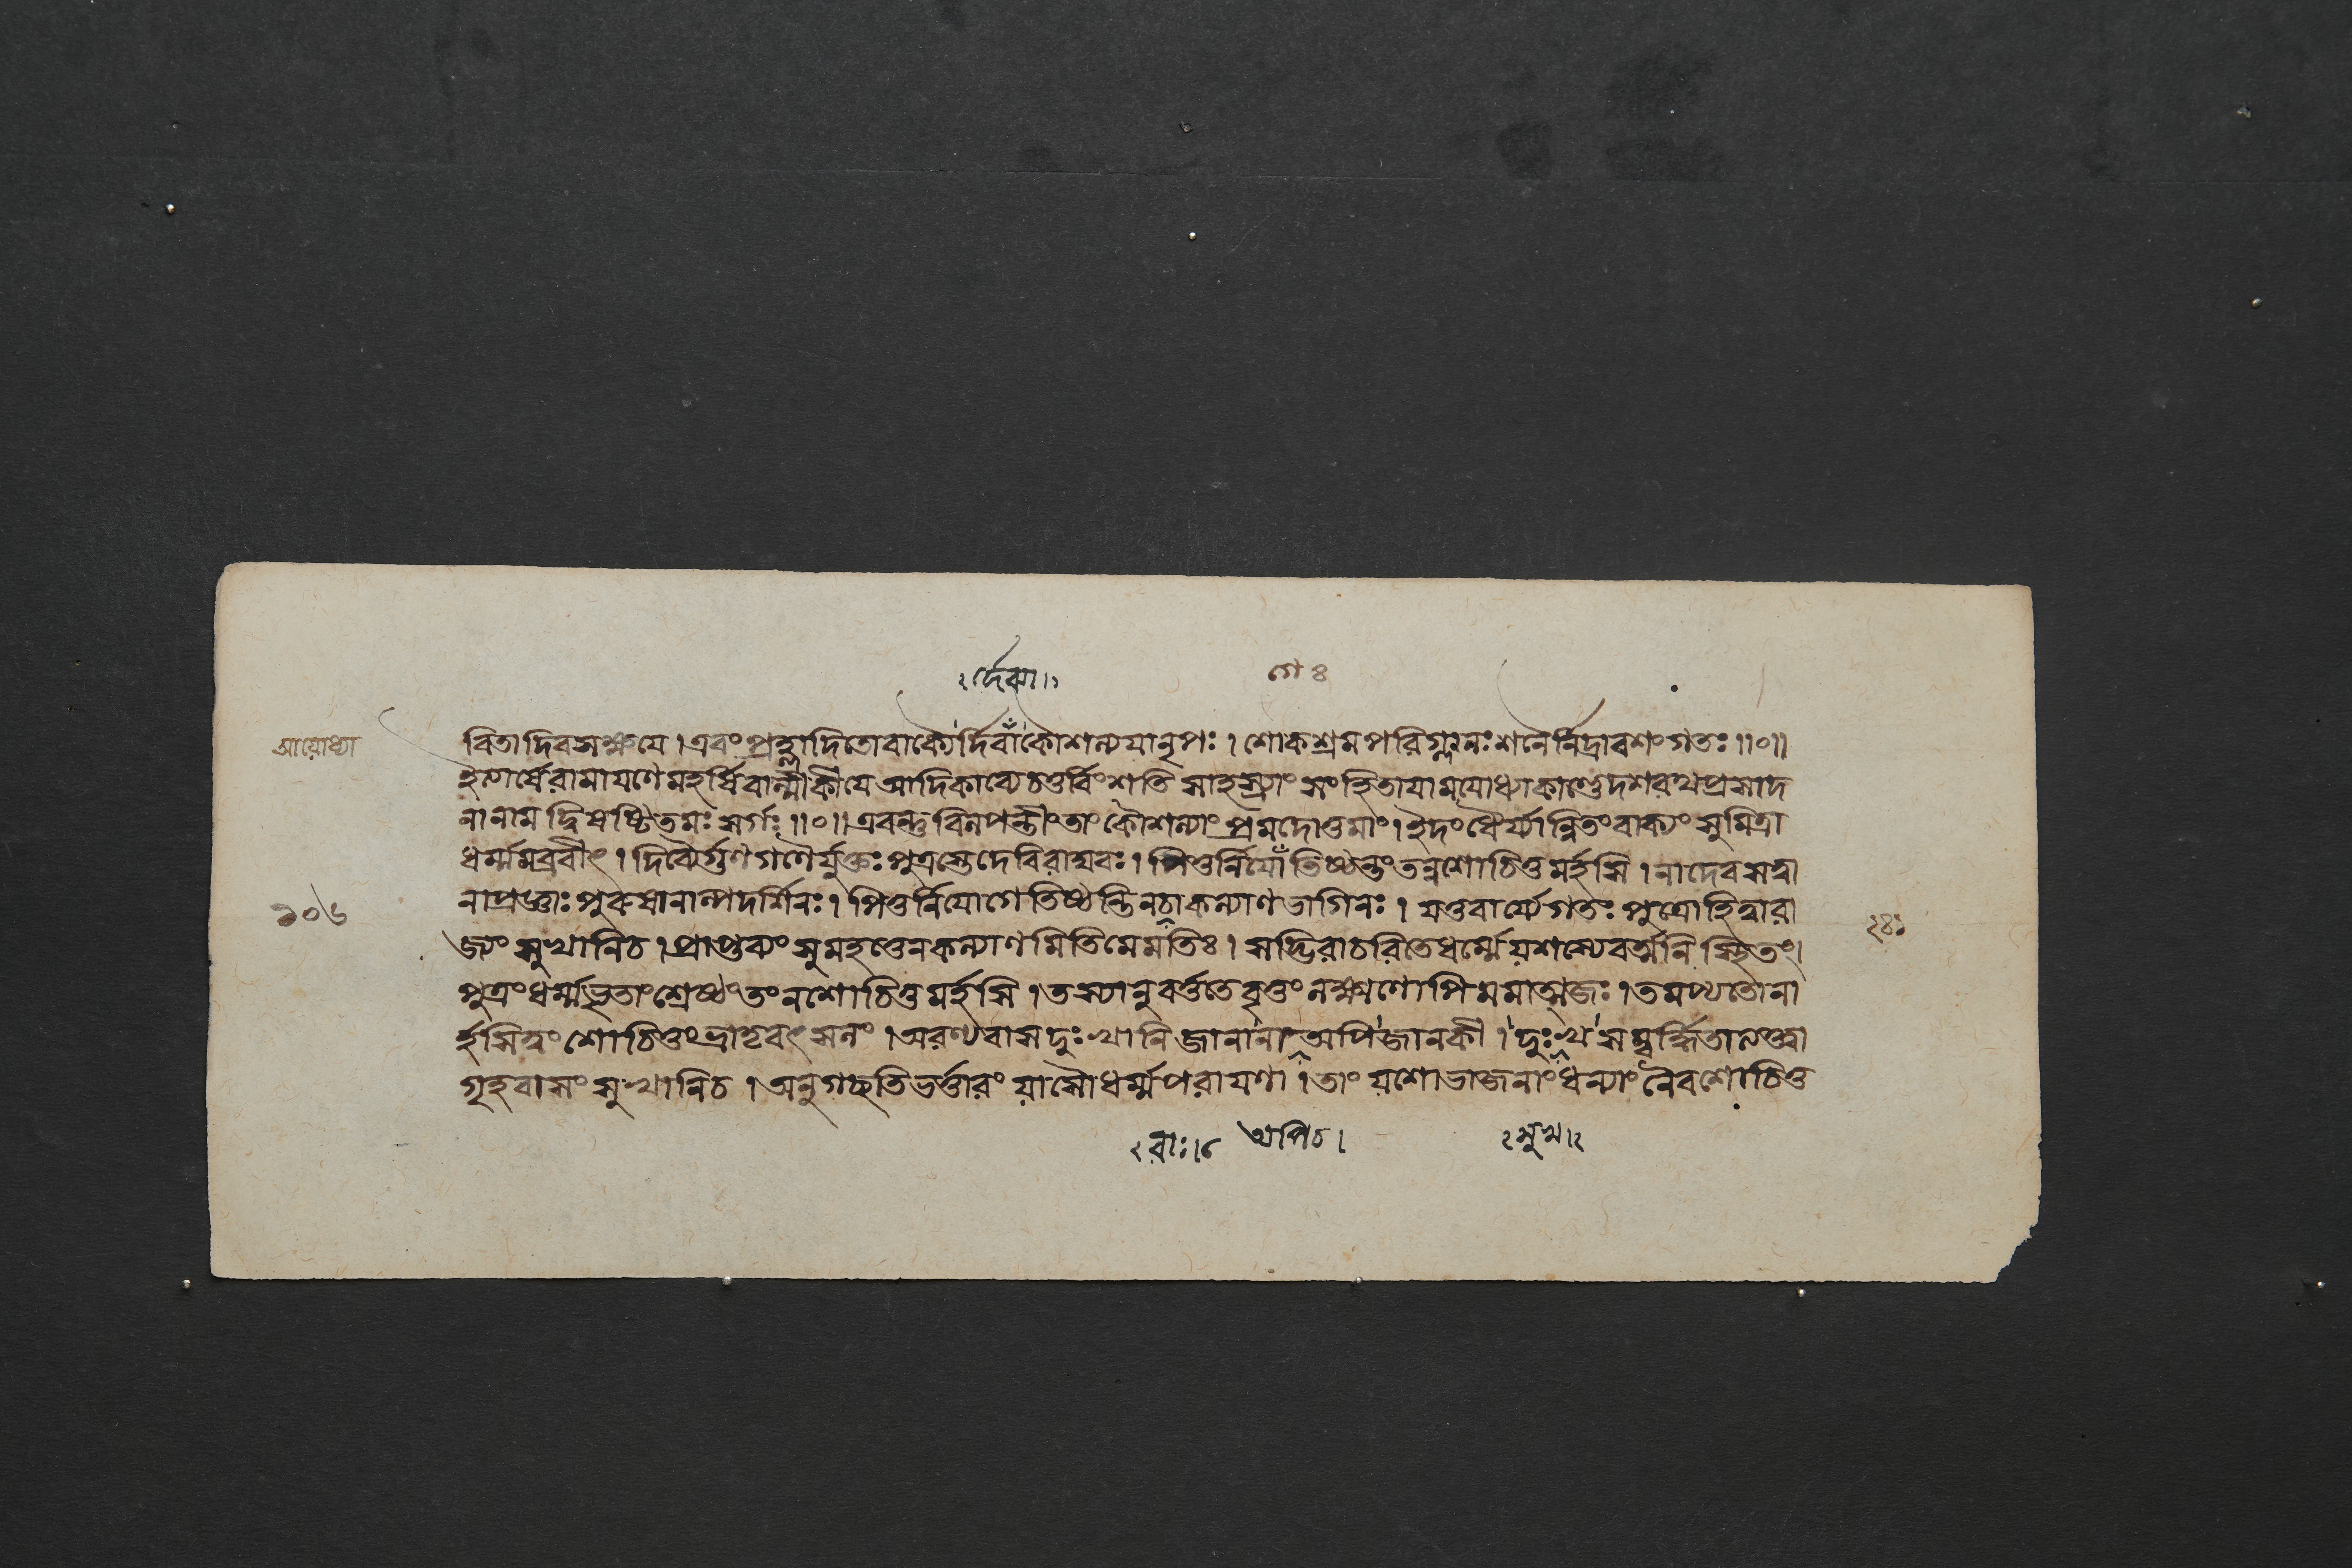 র্দেব্যা।
গে ৪
আয়োধ্যা
বিতা দিবসক্ষয়ে । এবং প্রহ্লাদিতো বাক্যৈর্দিবা কৌশল্যয়া নৃপঃ । শোকশ্রমপরিগ্লানঃ শনৈর্নিদ্রাবশং গতঃ ॥০॥
ইত্যার্ষে রামায়ণে মহর্ষিবাল্মীকীয়ে আদিকাব্যে চতুর্বিংশতি সাহস্র্যাং সংহিতায়ামযোধ্যাকাণ্ডে দশরথপ্রসাদ
নানাম দ্বিষষ্টিতমঃ সর্গঃ ॥০॥ এবন্তু বিলপন্তীং তাং কৌশল্যাং প্রমদোত্তমাং । ইদং ধৈর্য্যান্বিতং বাক্যং সুমিত্রা
ধর্ম্ম্যমব্রবীৎ । দিব্যৈর্গুণগণৈর্যুক্তঃ পুত্রস্তে দেবি রাঘবঃ । পিতুর্নিযো তিষ্ঠন্তং তন্ন শোচিতুমর্হসি । না দেবসত্বা
নাপ্রজ্ঞাঃ পুরুষা নাল্পদর্শিনঃ । পিতুর্নিয়োগে তিষ্ঠন্তি নচা কল্যাণভাগিনঃ । যত্তবার্য্যে গতঃ পুত্রো হিত্বা রা
১০৬
২৪ঃ
জ্যং সুখানি চ । প্রাপ্তব্যং সুমহত্তেন কল্যাণমিতি মে মতিঃ । সদ্ভিরাচরিতে ধর্ম্মে যশস্যে বর্ত্মনি স্থিতং।
পুত্রং ধর্ম্মভৃতাং শ্রেষ্ঠং তং ন শোচিতুমর্হসি । তস্যানুবর্ত্ততে বৃত্তং লক্ষ্মণোপি মমাত্মজঃ । তমপ্যতো না
র্হসি ত্বং শোচিতুং ভ্রাতৃবৎসলং । অরণ্যবাসদুঃখানি জানানা অপি জানকী । দুঃখসম্বর্দ্ধিতা ত্যক্ত্বা
গৃহবাসং সুখানি চ । অনুগচ্ছতি ভর্ত্তারং যাসৌ ধর্ম্মপরায়ণা । তাং যশোভাজনাং ধন্যাং নৈব শোচিতু
রাঃ।৮ অপিচ।
সুখ।২